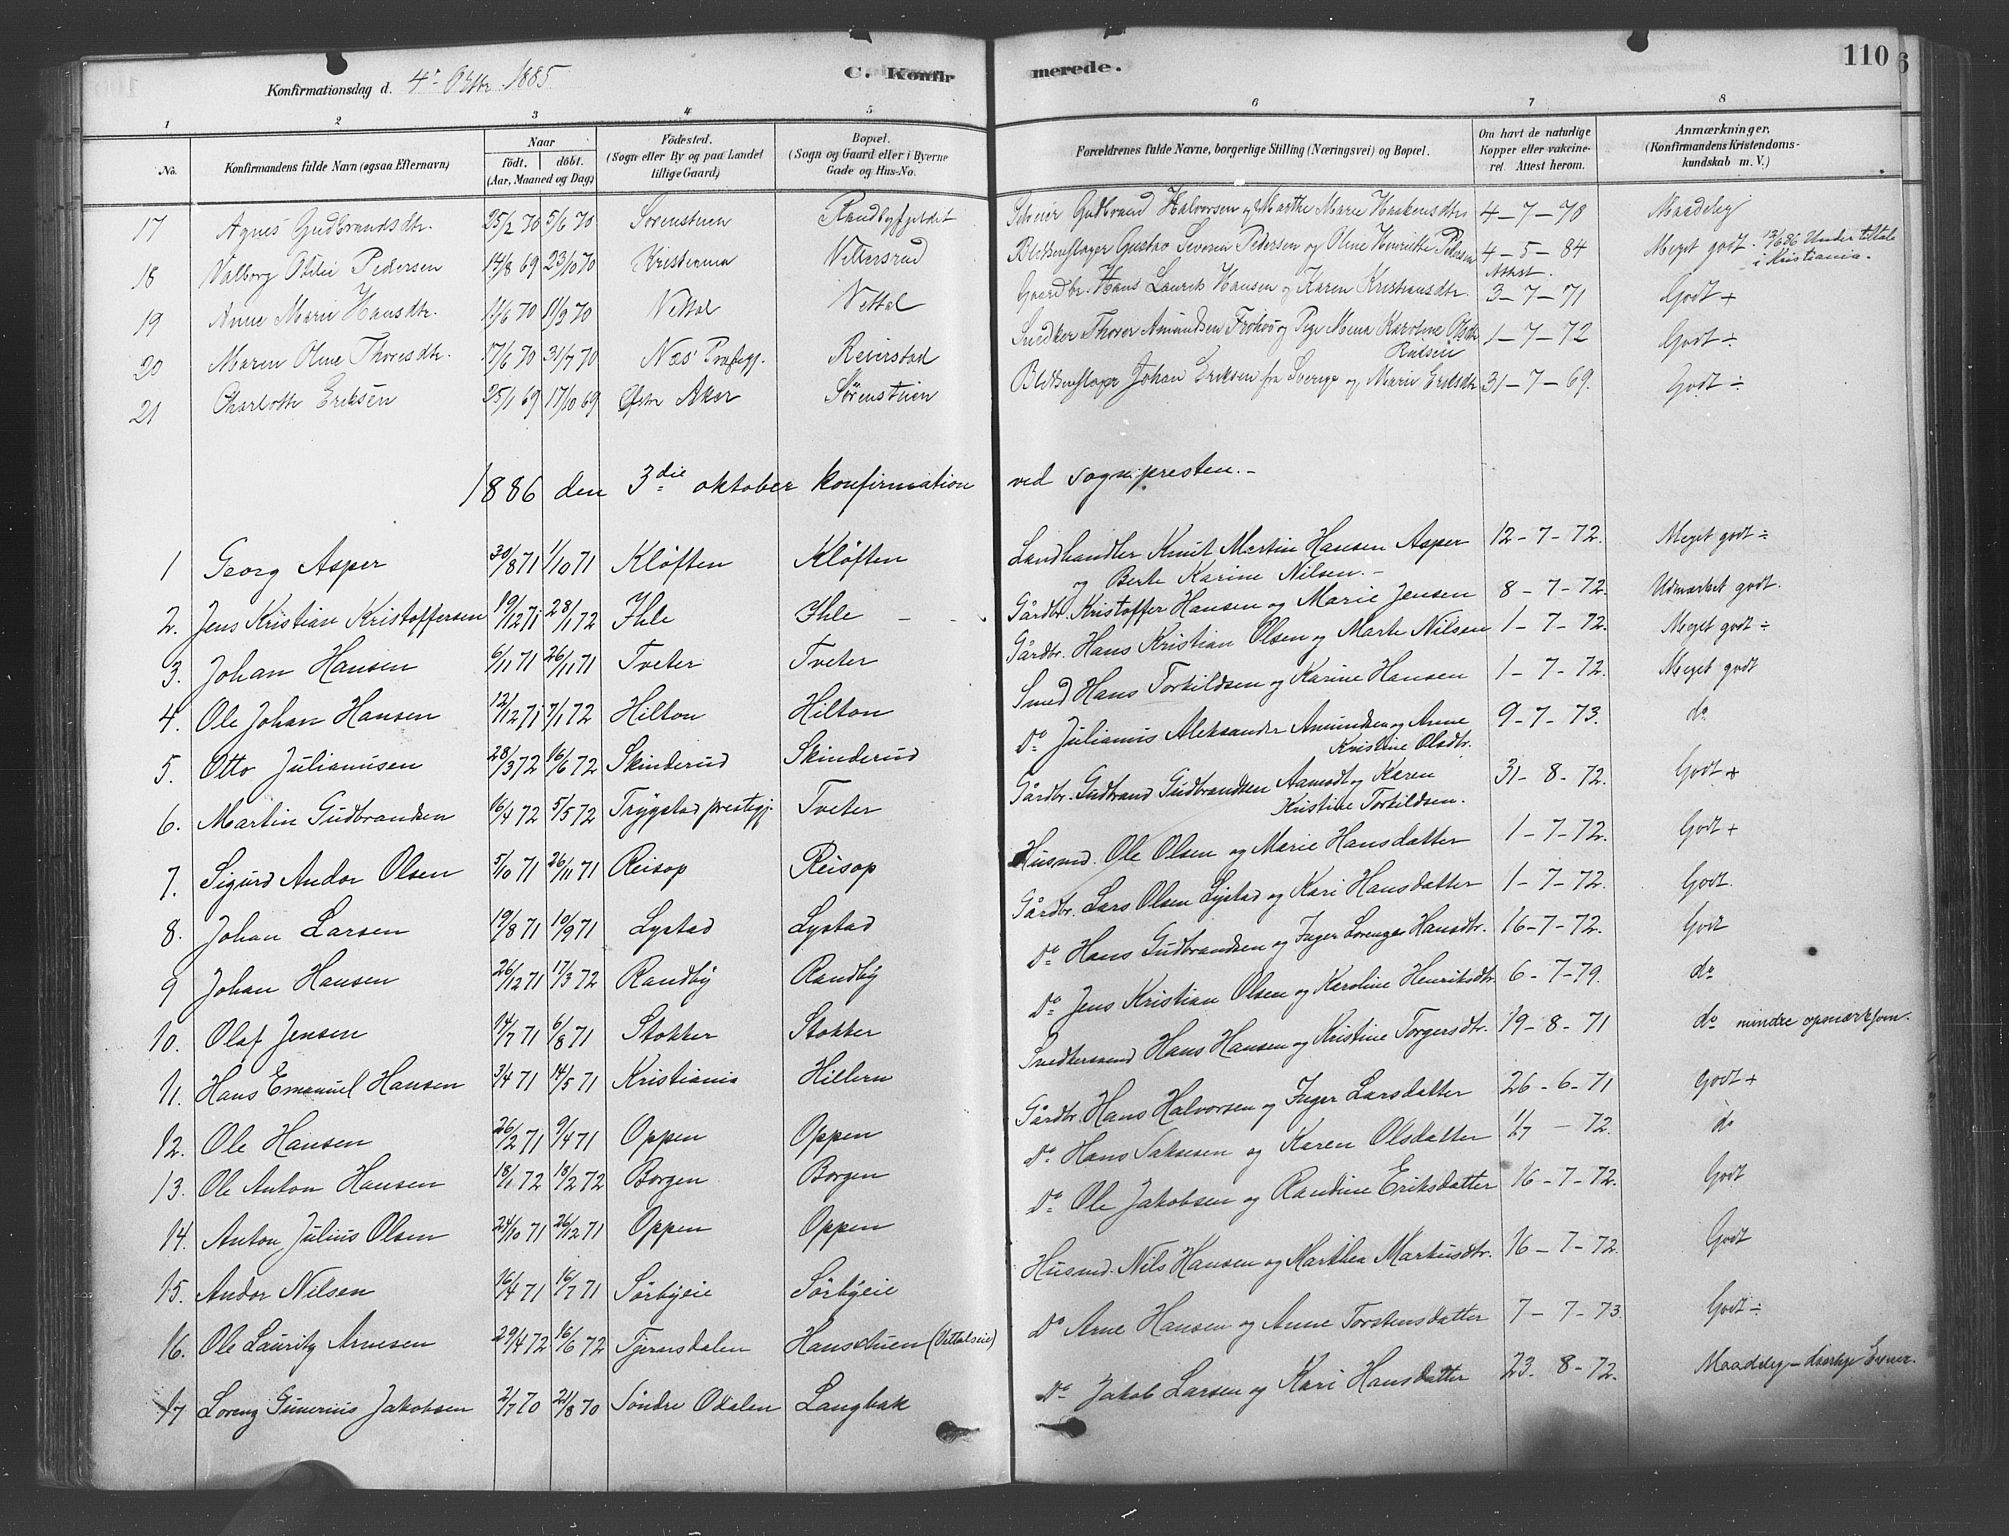 110
Konfirmationsdag d. 4de Oktbr. 1885
C. Konfirmerede.
1 2 3 4 5 6 7 8
No.
Konfirmandens fulde Navn (ogsaa Efternavn)
Naar födt. döbt. (Aar, Maaned og Dag)
Födested. (Sogn eller By og paa Landet tillige Gaard)
Bopæl. (Sogn og Gaard eller i Byerne Gade og Hus-No.
Forældrenes fulde Navne, borgerlige Stilling (Næringsvei) og Bopæl.
Om havt de naturlige Kopper eller vakcineret. Attest herom.
Anmærkninger. (Konfirmandens Kristendomskundskab m. V.)
17 Agnes Gudbrandsdtr. 25/2 70 5/6 70 Sörenstuen Randbyfjeldet Gudbrand Halvorsen og Marthe Marie Haakensdtr 4-7-78 Maadelig
18 Valborg Otilie Pedersen 14/8 69 23/10 70 Kristiania Vilbersrud Blikkenslager Gustav Severin Pedersen og Oline Henriette Pedersen 4-5-84 Attest. Meget godt. 13/6 86 Under tiltale i Kristiania.
19 Anne Marie Hansdtr. 11/6 70 11/9 70 Vettal Vettal Gaardbr. Hans Laurits Hansen og Karen Kristiansdtr. 3-7-71 Godt +
20 Maren Oline Thoresdtr. 17/6 70 31/7 70 Næs' Præstegj. Reierstad Snedker Thorer Amundsen og Pige Mena Karoline 1-7-72 Godt ÷
21 Charlotte Eriksen 25/1 69 17/10 69 Østre Aker Sørenstuen Blikkenslager Johan Eriksen fra Sverige og Marie Eriksdtr 31-7-69. Godt ÷
1886 den 3die oktober konfirmation ved sognepresten.-
1 Georg Asper 30/8 71 1/10 71 Kløften Kløften Landhandler Knut Martin Hansen Asper og Berte Karine Nilsen.- 12-7-72. Meget godt ÷
2. Jens Kristian Kristoffersen 19/12 71 28/1 72 Ihle Ihle Gårdbr. Kristoffer Hansen og Marie Jensen 8-7-72. Udmærket godt.
3. Johan Hansen 6/11 71 26/11 71 Tveter Tveter Gårdbr. Hans Kristian Olsen og Marte Nilsen 1-7-72. Meget godt ÷
4. Ole Johan Hansen 12/12 71 7/1 72 Hilton Hilton Smed Hans Torkildsen og Karine Hansen 1-7-72. Meget godt
5. Otto Julianusen 28/3 72 16/6 72 Skinderud Skinderud Do Julianus Aleksander Amundsen og Anne Kristine Olsdtr. 9-7-73. do
6. Martin Gudbrandsen 16/4 72 5/5 72 Trygstad prestegj. Tveter Gårdbr. Gudbrand Gudbrandsen Aamodt og Karen Kristine Torkildsen. 31-8-72. Godt +
7. Sigurd Andor Olsen 5/10 71 26/11 71 Reisop Reisop Husmd. Ole Olsen og Marie Hansdatter 1-7-72. Godt +
8. Johan Larsen 19/8 71 10/9 71 Lystad Lystad Gårdbr. Lars Olsen Lystad og Kari Hansdatter 1-7-72. Godt.
9 Johan Hansen 26/12 71 17/3 72 Randby Randby Do Hans Gudbrandsen og Inger Lorenze Hansdtr. 16-7-72. Godt
10. Olaf Jensen 14/7 71 6/8 71 Stokker Stokker Do Jens Kristian Olsen og Karoline Henriksdtr. 6-7-79. do
11. Hans Emanuel Hansen 3/4 71 14/5 71 Kristiania Hillern Snedkersvend Hans Hansen og Kristine Torgersdtr. 19-8-71 do mindre opmærksom.
12. Ole Hansen 26/2 71 9/4 71 Oppen Oppen Gårdbr. Hans Halvorsen og Inger Larsdatter 26-6-71 Godt +
13. Ole Anton Hansen 18/1 72 18/2 72 Borgen Borgen Do Hans Saksesen og Karen Olsdatter 1/7 - 72. do
14. Anton Julius Olsen 24/10 71 26/12 71 Oppen Oppen Do Ole Jakobsen og Randine Eriksdatter 16-7-72. Godt
15. Andor Nilsen 16/4 71 16/7 71 Sörbyeie Sörbyeie Husmd. Nils Hansen og Marthea Markusdtr. 16-7-72. Godt
16. Ole Lauritz Arnesen 29/4 72 16/6 72 Hansstuen (Vettaleie) Do Arne Hansen og Anne Torstensdatter 7-7-73. Godt ÷
17 Lorenz Gunerius Jakobsen 2/7 70 21/8 70 Söndre Odalen Langbak Do Jakob Larsen og Kari Hansdatter 23-8-72. Maadelig - daarlige Evner.